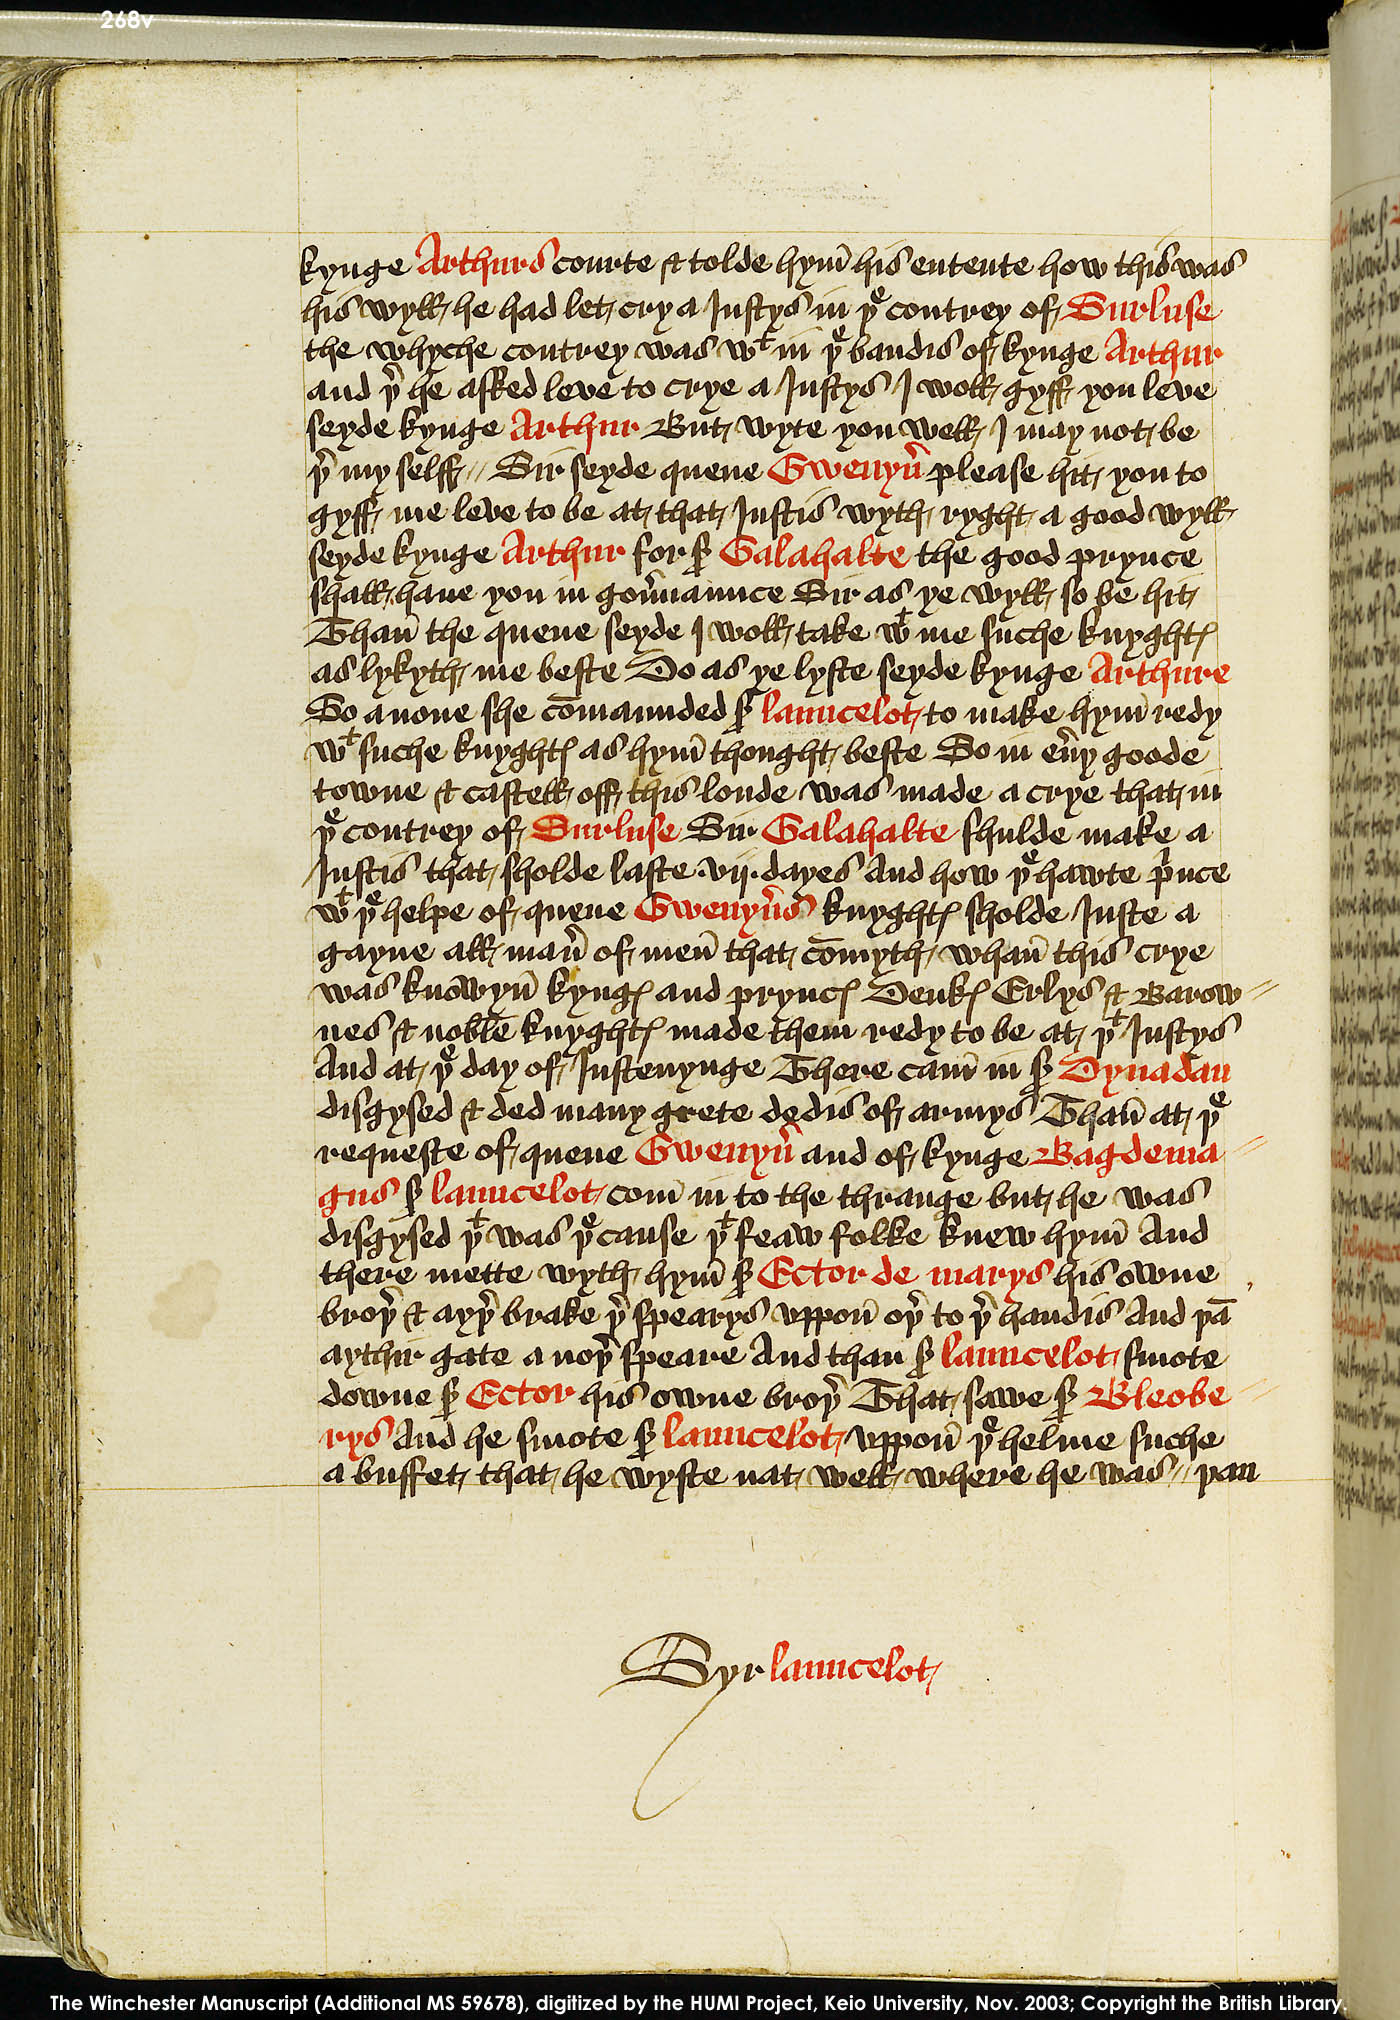 268v
kynge Arthurs courte & tolde hym̄ his entente how this was
his wyll he had let cry a Justys in þe contrey of Surluse
the whyche contrey was wt in þe bandis of kynge Arthur
and þr he asked leve to crye a Justys I woll gyff you leve
seyde kynge Arthur But wyte you well I may not be
þr my selff // Sir seyde quene Gwenyũ please hit you to
gyff me leve to be at that Justis wyth ryght a good wyll
seyde kynge Arthur for sr Galahalte the good prynce
shall haue you in goũnaunce Sir as ye wyll so be hit
Than̄ the quene seyde I woll take wt me suche knyghtꝭ
as lykyth me beste Do as ye lyste seyde kynge Arthure
So anone she cōmaunded sr launcelot to make hym̄ redy
wt suche knyghtꝭ as hym̄ thought beste So in eũy goode
towne & castell off this londe was made a crye that in
þe contrey of Surluse Sir Galahalte shulde make a
Justis that sholde laste .vij. dayes And how þe hawte pince
wt þe helpe of quene Gwenyũs knyghtꝭ sholde Juste a
gayne all man̄ of men̄ that cōmyth whan̄ this crye
was knōwyn̄ kyngꝭ and pryncꝭ Deukꝭ Erlys & Barow //
nes & noble knyghtꝭ made them redy to be at þt Justys
And at þe day of Justenynge There cam̄ in sr Dynadan
disgysed & ded many grete dedis of armys Than̄ at þe
requeste of quene Gwenyũ and of kynge Bagdema //
gus sr launcelot com̄ in to the thrange but he was
disgysed þt was þe cause þt feaw folke knew hym̄ And
there mette wyth hym̄ sr Ector de marys his owne
broþr & ayþr brake þr spearys vppon̄ oþr to þr handis And þā
aythir gate a noþr speare And than sr launcelot smote
downe sr Ector his owne broþr That sawe sr Bleobe //
rys And he smote sr launcelot vppon̄ þe helme suche
a buffet that he wyste nat well where he was // þan
Syr launcelot
The Winchester Manuscript (Additional MS 59678), digitized by the HUMI Project, Keio University, Nov. 2003; Copyright the British Library.